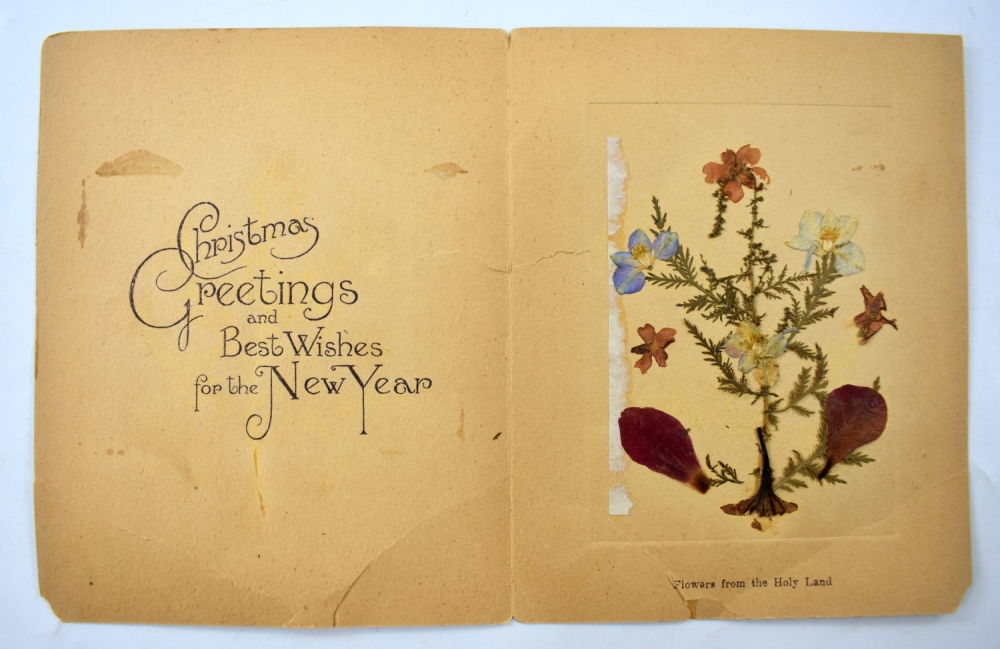 Christmas
Greetings
and
Best Wishes
for the New Year
Flowers from the Holy Land